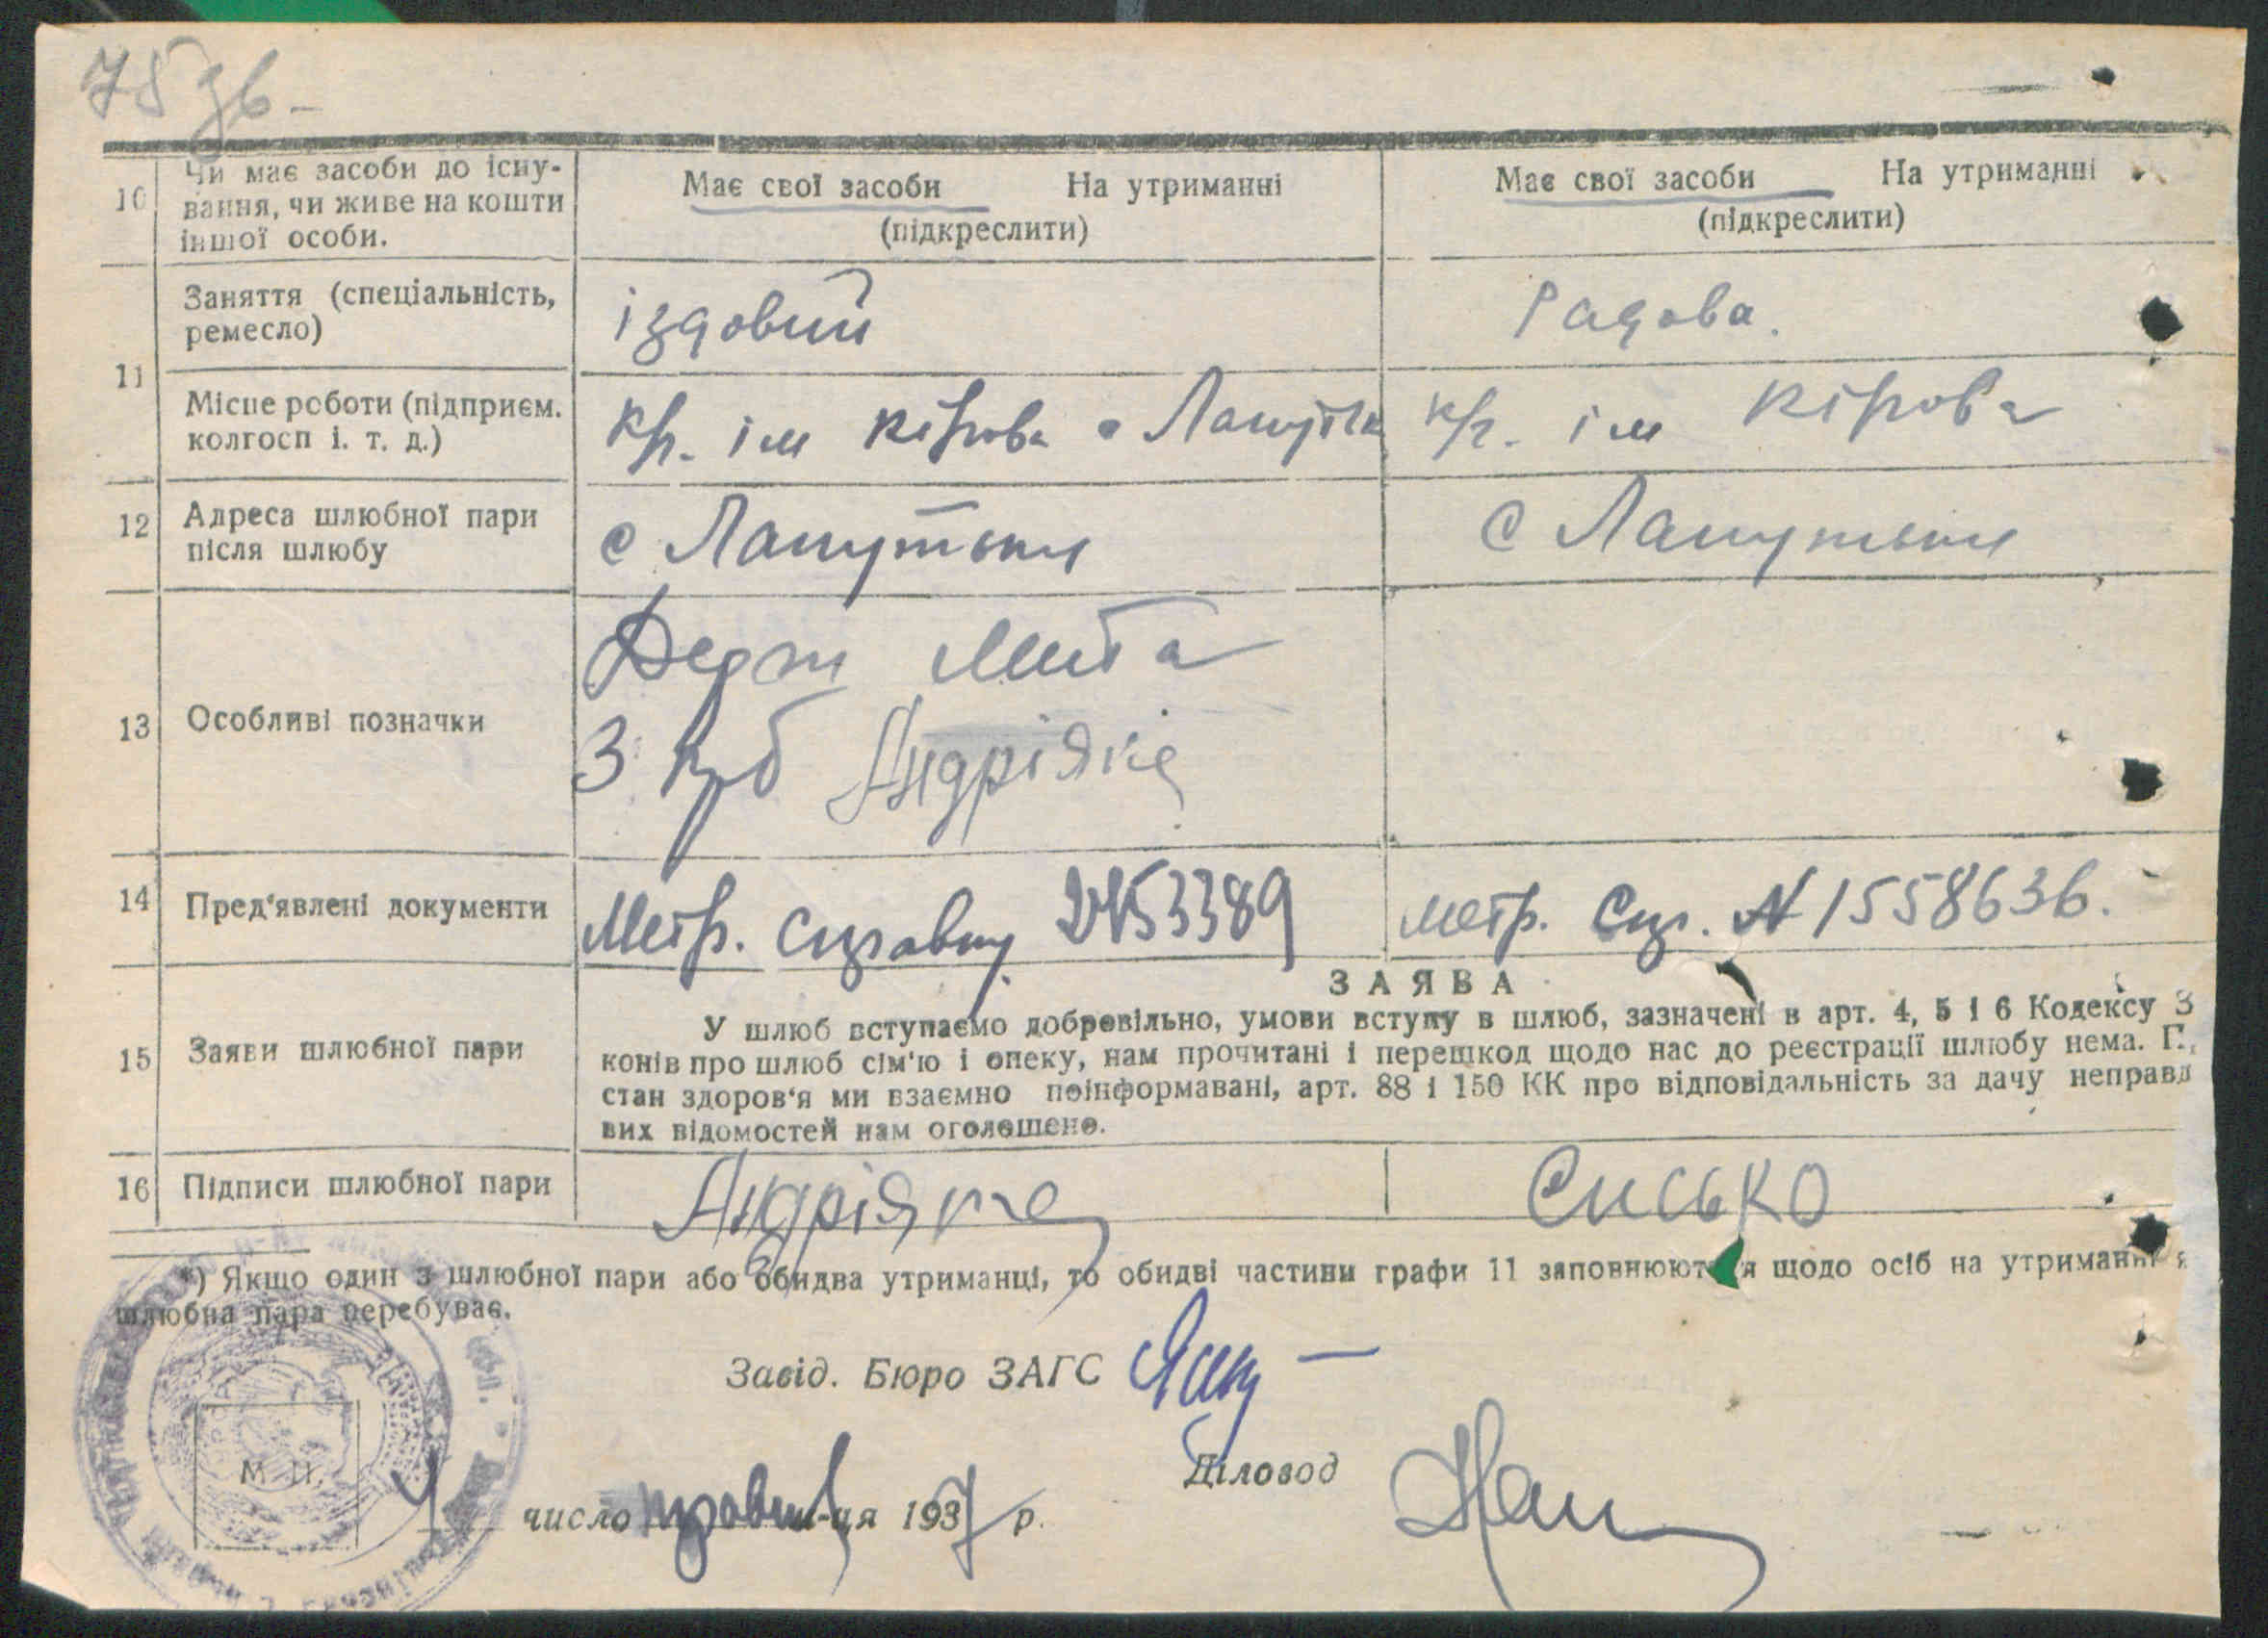 75 зв
10 Чи має засоби до існу-
вання, чи живе на кошти
іншої особи.
Має свої засоби На утриманні
(підкреслити)
Має свої засоби На утриманні
(підкреслити)
11
Заняття (спеціальність,
ремесло)
їздовий
Рядова.
Місце роботи (підприєм.
колгосп і. т. д.)
к/г. ім Кірова
к/г. ім Кірова
12 Адреса шлюбної пари
після шлюбу
с Лапутьки
с Лапутьки
13 Особливі позначки
Держ Мита
3 крб Андріяке
14 Пред'явлені документи
Метр. Справку 2153389
Метр. Спр. № 1558636.
ЗАЯВА
15 Заяви шлюбної пари
У шлюб вступаємо добровільно, умови вступу в шлюб, зазначені в арт. 4, 5 і 6 Кодексу З
конів про шлюб сім'ю і опеку, нам прочитані і перешкод щодо нас до реєстрації шлюбу нема. П
стан здоров'я ми взаємно поінформавані, арт. 88 і 150 КК про відповідальність за дачу неправд
вих відомостей нам оголошено.
16 Підписи шлюбної пари
Андріяке
Сисько
*) Якщо один з шлюбної пари або обидва утриманці, то обидві частини графи 11 заповнюються щодо осіб на утриманні я
шлюбна пара перебуває.
Завід. Бюро ЗАГС
Діловод
М. П.
4 число травня м-ця 1937 р.